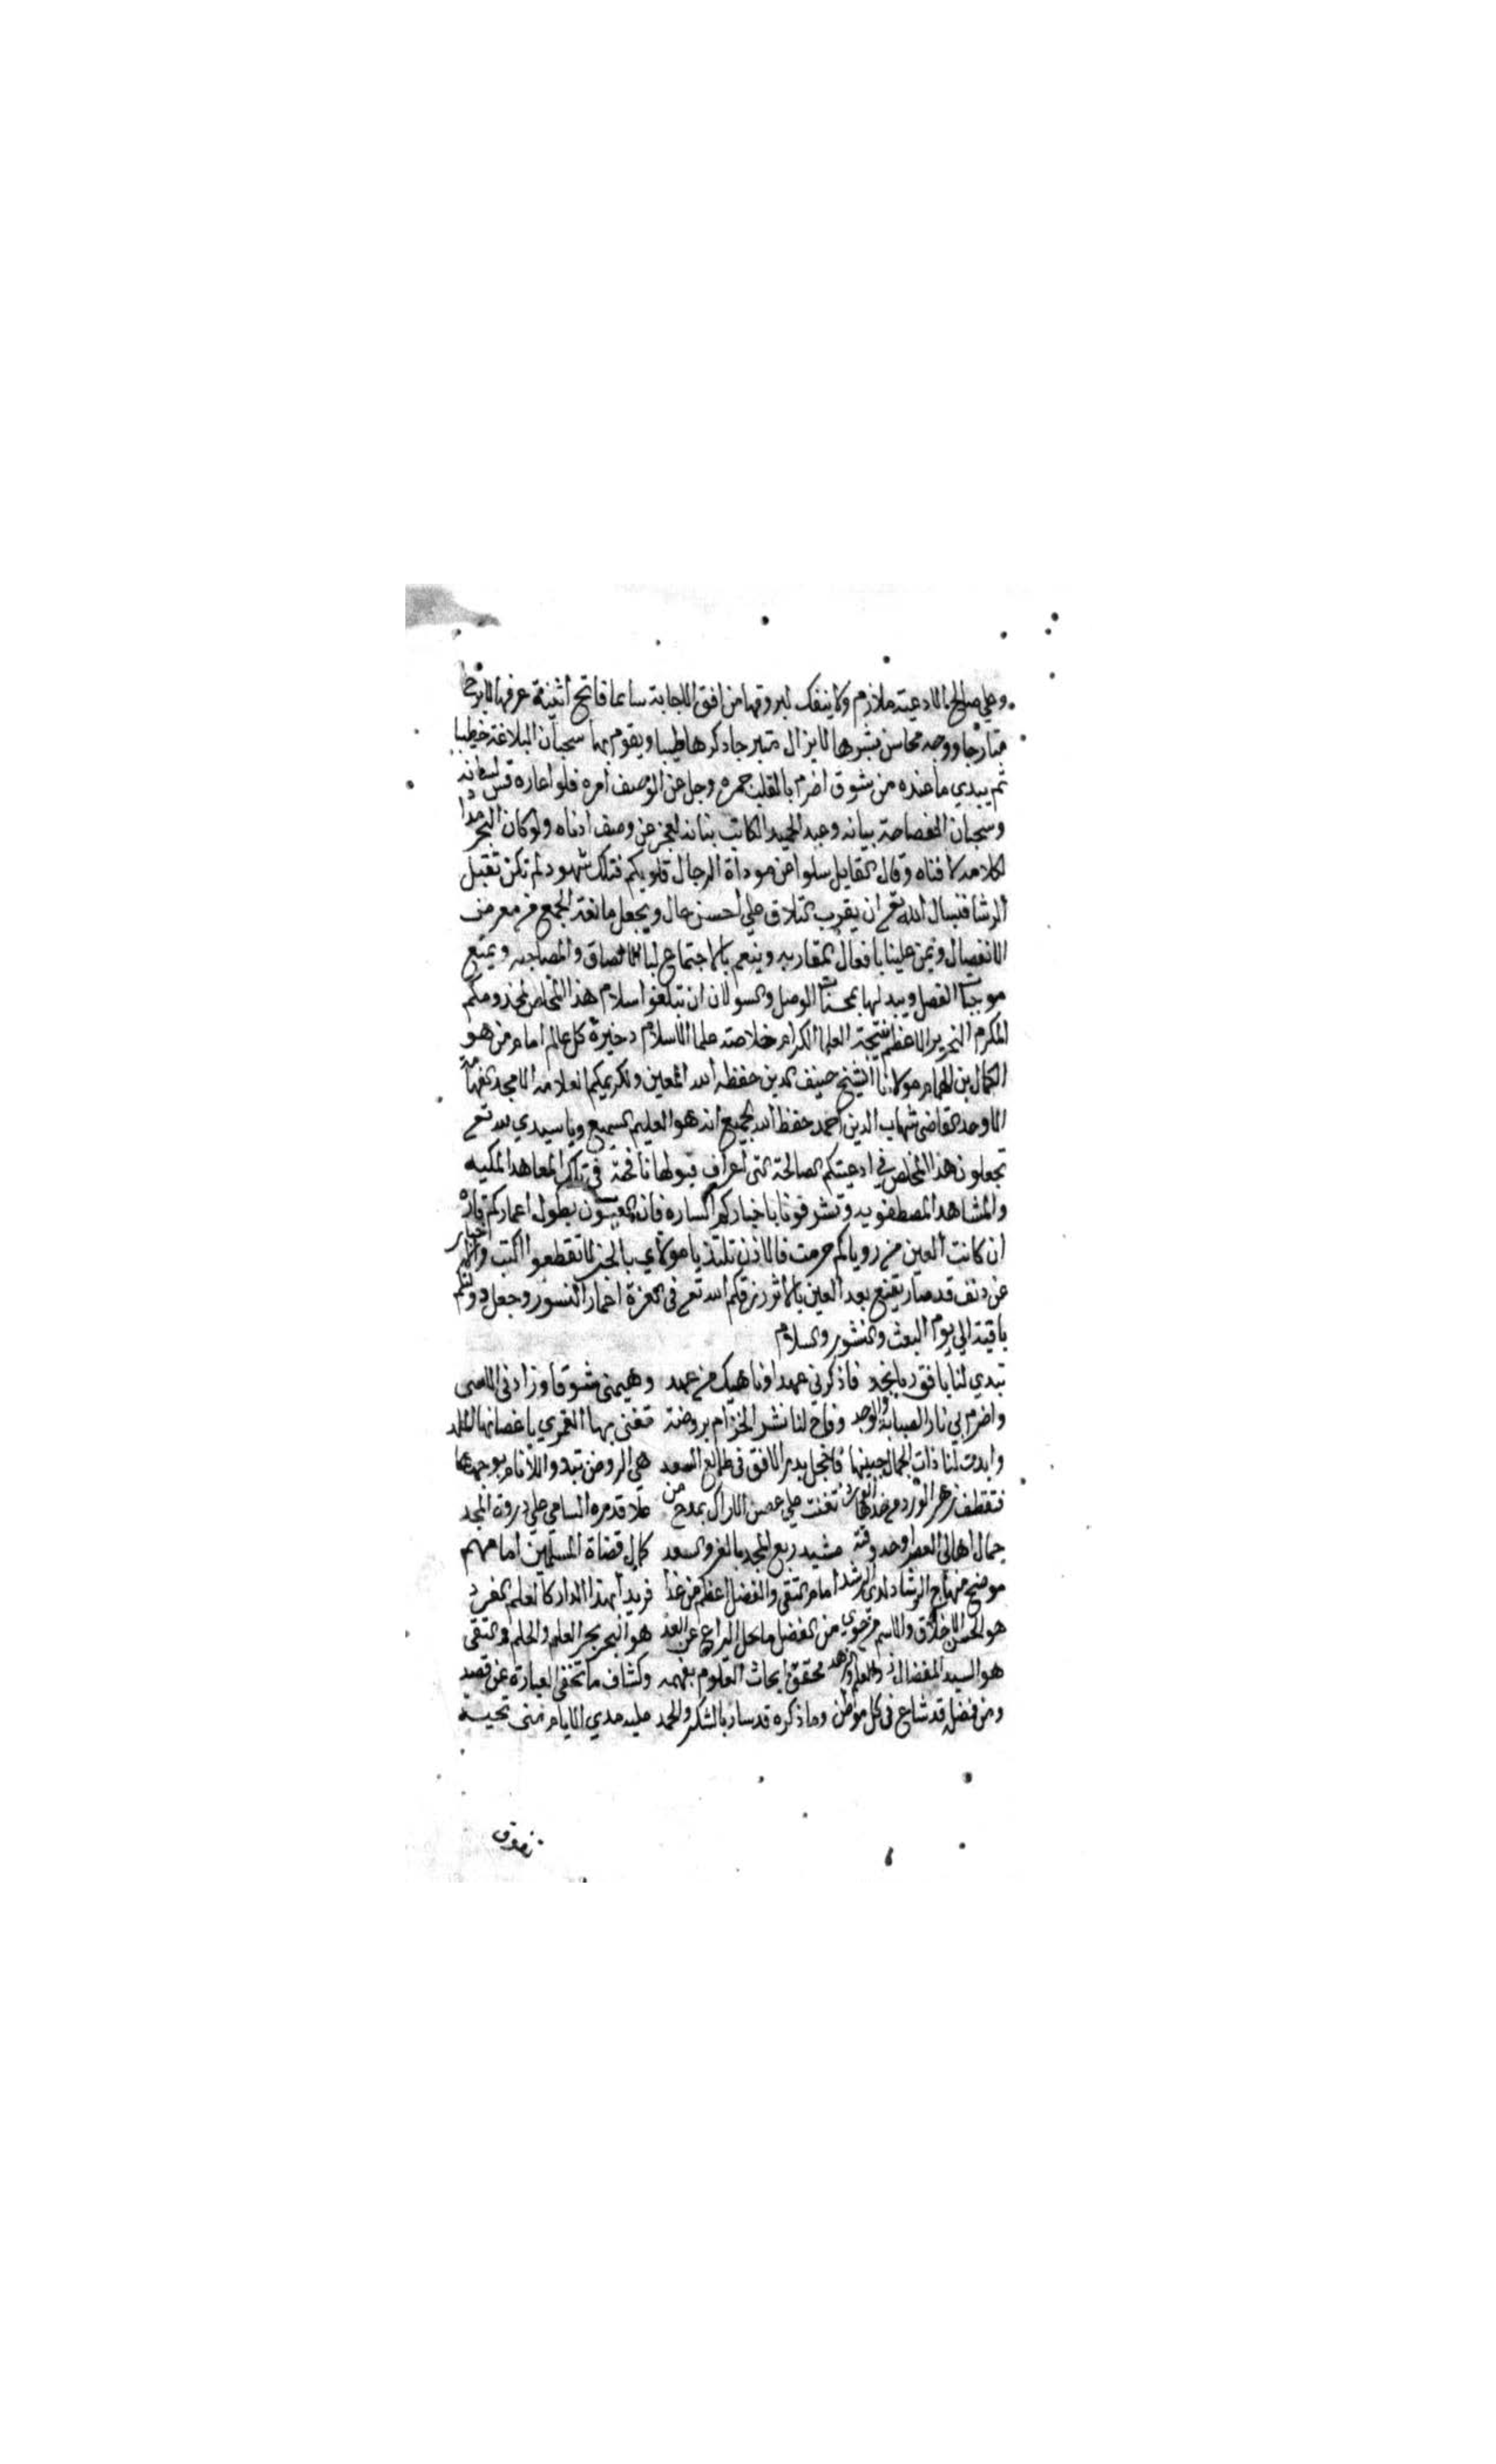 وعلي صالح الادعية ملازم ولا ينفك لبروقها من افق الاجابة ساعما فاتح اثنية عرفها لا برح
متارجا ووجه محاسن بشرها لا يزال متبرجا ذكرها طيبا ويقوم بها سحبان البلاغة خطيبا
ثم يبدي ما عنده من شوق اضرم بالقلب جمره وجل عن الوصف امره فلو اعاره قس لسانه
وسحبان الفصاحة بيانه وعبد الحميد الكاتب بنانه لعجز عن وصف ادناه ولو كان البحر مدادا
لكلامه لافناه وقال القايل سلوا عن موداة الرجال قلوبكم فتلك شهود لم تكن تقبل
الرشا فنسال الله تع ان يقرب التلاق علي احسن حال ويجعل مانعة الجمع في معرض
الانفصال ويمن علينا بافعال المقاربه وينعم بالاجتماع لبا الالصاق والمصاحبه ويمتع
موجبات الفصل ويبدلها بمحسنات الوصل والسوالان ان تبلغوا سلام هذا المخلص لمخدومكم
المكرم النحرير الاعظم نتيجة العلما الكرام خلاصة علما الاسلام ذخيرة كل عالم امام من هو
الكمال بن الهمام مولانا الشيخ حنيف الدين حفظه الله المعين ولكريمكم العلامه الامجد الفهامة
الاوحد القاضي شهاب الدين احمد حفظ الله الجميع انه هو العليم السميع ويا سيدي لله تع
تجعلون هذا المخلص في ادعيتكم الصالحة التي اعراف قبولها نافحة في تلك المعاهد المكيه
والمشاهد المصطفويه وتشرفونا باخباركم الساره فان العيون بطول اعماركم قاره
ان كانت العين من روياكم حرمت فالاذن تلتذ يا مولاي بالخبر لا تقطعوا الكتب والاخبار
عن دنف قد صار يقنع بعد العين بالاثر رزقكم الله تع في العزة اعمار النسور وجعل دولتكم
باقية الي يوم البعث والنشور والسلام
تبدي لنا بافق ربا نجد فاذكرني عهدا وناهيك من عهد وهيمني شوقا وزادني الاسى
واضرم بي نار الصبابة والوجد وفاح لنا نشر الخزام بروضة تغنى بها القمري باغصانها الملد
وابدت لنا ذات الجمال جبينها فاخجل بدر الافق في طالع السعد هي الروض تبدو للانام بوجهها
فتقطف زهر الورد من خدها الورد تغنت علي غصن الاراك بمدح من علا قدره السامي علي ذروة المجد
جمال اهالي العصر اوحد وقته مشيد ربع المجد بالعز والسعد كمال قضاة المسلمين امامهم
موضح منهاج الرشاد لذي الرشد امام التقى والفضل اعظم من غدا فريدا بهذا الدار كالعلم الفرد
هو الحسن الاخلاق والاسم من حوي من الفضل ما حل اليراع عن العد هو البحر بحر العلم والحلم والتقى
هو السيد المفضال ذو العلم والزهد محقق ابحاث العلوم بفهمه وكشاف ما تخفي العبارة عن قصد
ومن فضله قد شاع في كل مواطن وما ذكره قد سار بالشكر والحمد عليه مدي الايام مني تحية
تفوق